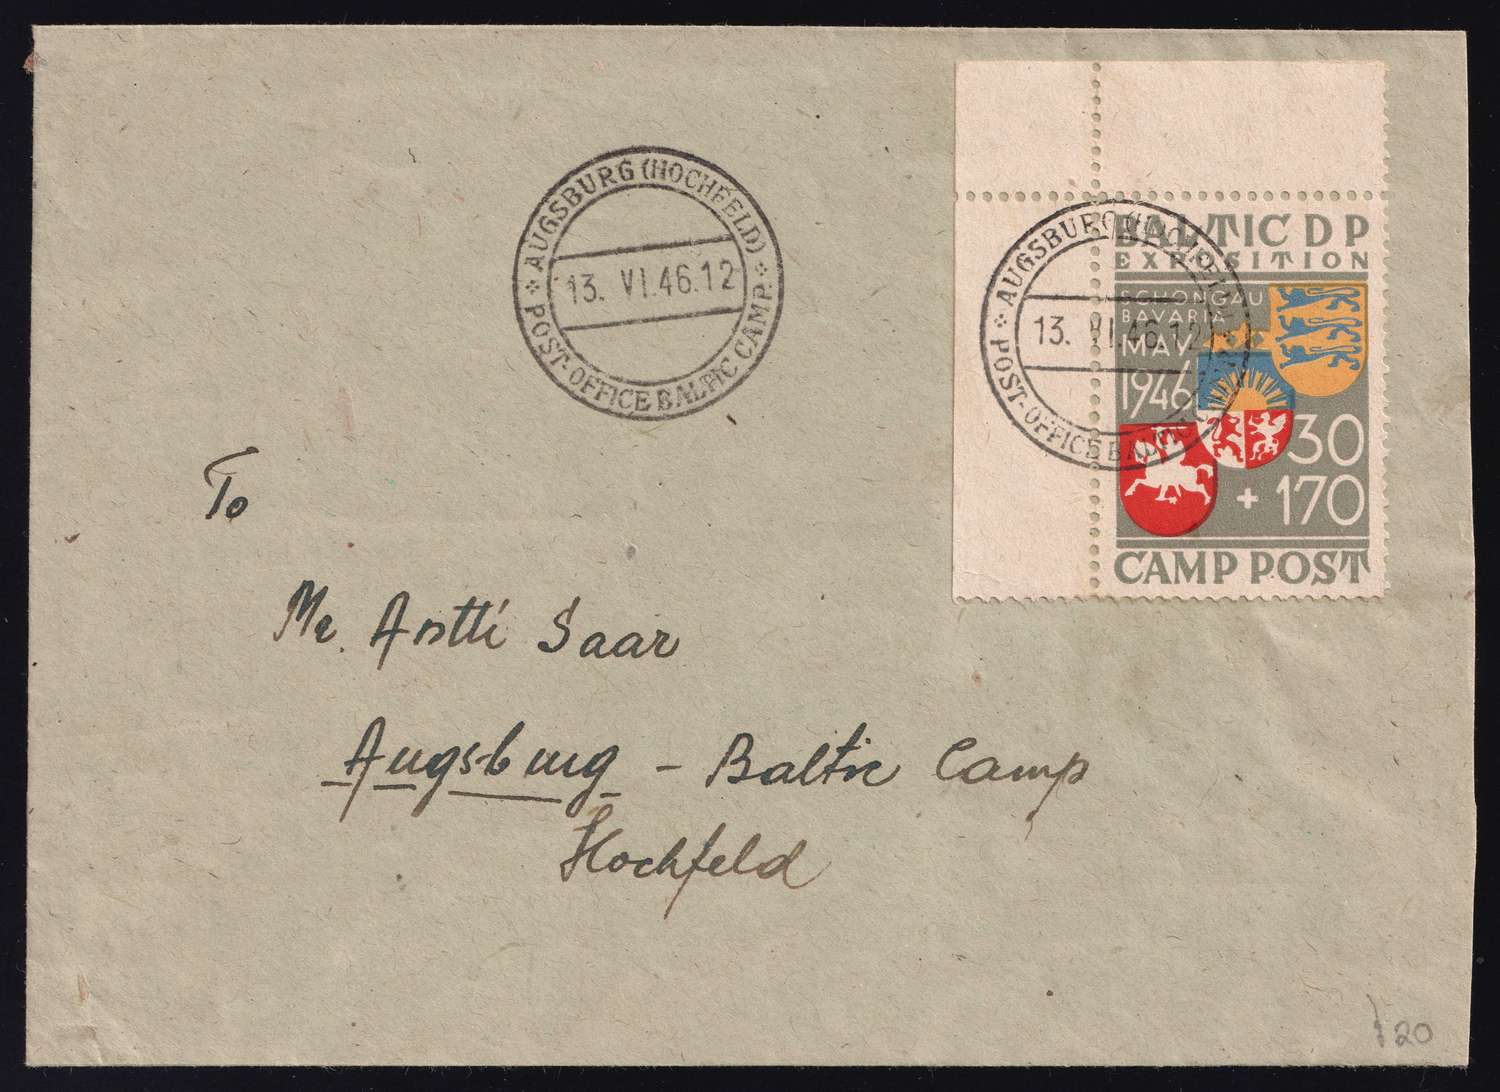 AUGSBURG (HOCHFELD)
13. VI.46.12
POST-OFFICE BALTIC CAMP.
AUGSBURG (HOCHFELD)
13. VI.46.12
POST-OFFICE BALTIC
BALTIC D P
EXPOSITION
SCHONGAU
BAVARIA
MAY
1946
30
+ 170
CAMP POST
To
Mr. Antti Saar
Augsburg - Baltic Camp
Hochfeld
120